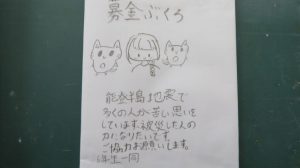 募金ぶくろ
能登半島地震で
多くの人が苦しい思いを
しています。被災した人の
力になりたいです。
ご協力お願いします。
6年生一同